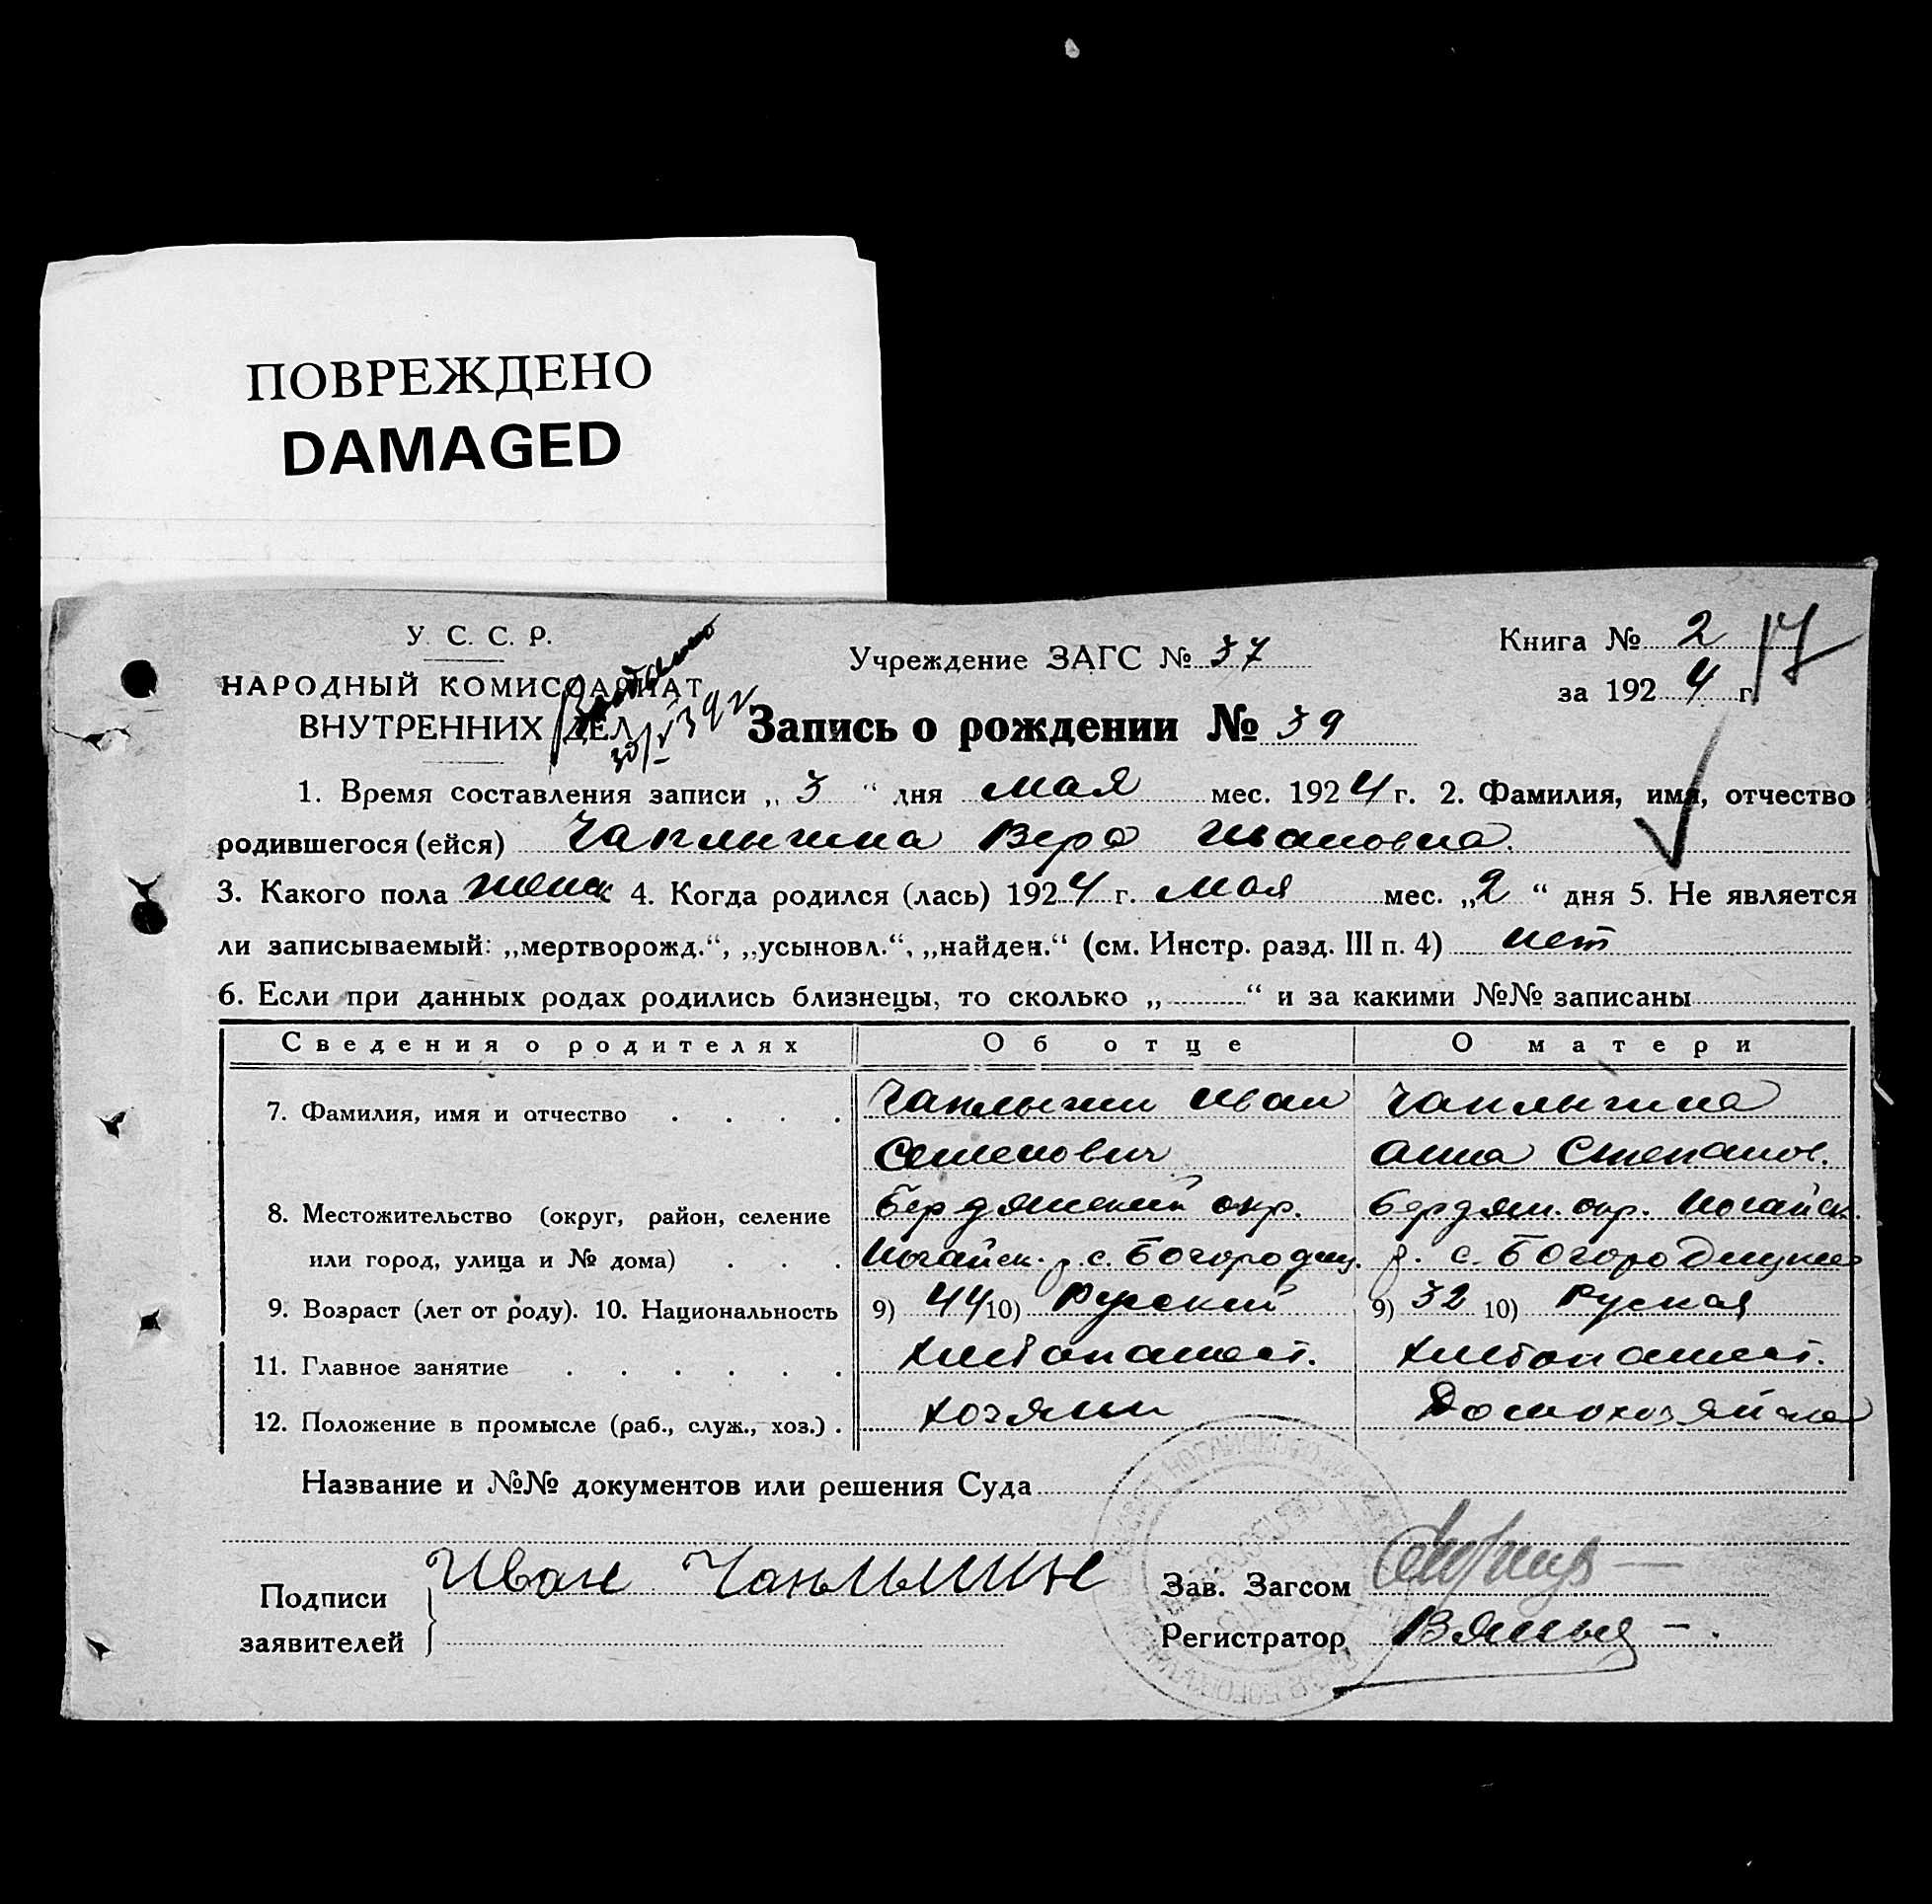 ПОВРЕЖДЕНО
DAMAGED
У. С. С. Р.
НАРОДНЫЙ КОМИССАРИАТ
ВНУТРЕННИХ ДЕЛ
Учреждение ЗАГС № 37
Книга № 2
17
за 1924 г.
Запись о рождении № 39
1. Время составления записи „ 3 “ дня мая мес. 1924 г. 2. Фамилия, имя, отчество
родившегося (ейся) Чаплыгина Вера Ивановна.
3. Какого пола женск 4. Когда родился (лась) 1924 г. мая мес. „2“ дня 5. Не является
ли записываемый: „мертворожд.“, „усыновл.“, „найден.“ (см. Инстр. разд. III п. 4) нет
6. Если при данных родах родились близнецы, то сколько „ “ и за какими №№ записаны
Сведения о родителях Об отце О матери
7. Фамилия, имя и отчество . . . . Чаплыгин Иван Чаплыгина
Семенович Анна Степанов.
8. Местожительство (округ, район, селение Бердянский окр. Бердян. окр. Ногайск.
или город, улица и № дома) . . . Ногайск. р. с. Богородиц. р. с. Богородицкое
9. Возраст (лет от роду). 10. Национальность 9) 44 10) Русский 9) 32 10) Руская
11. Главное занятие . . . . . . Хлебопашест. Хлебопашест.
12. Положение в промысле (раб., служ., хоз.) . Хозяин Домохозяйка
Название и №№ документов или решения Суда
Подписи
заявителей
Иван Чаплыгин
Зав. Загсом
Регистратор